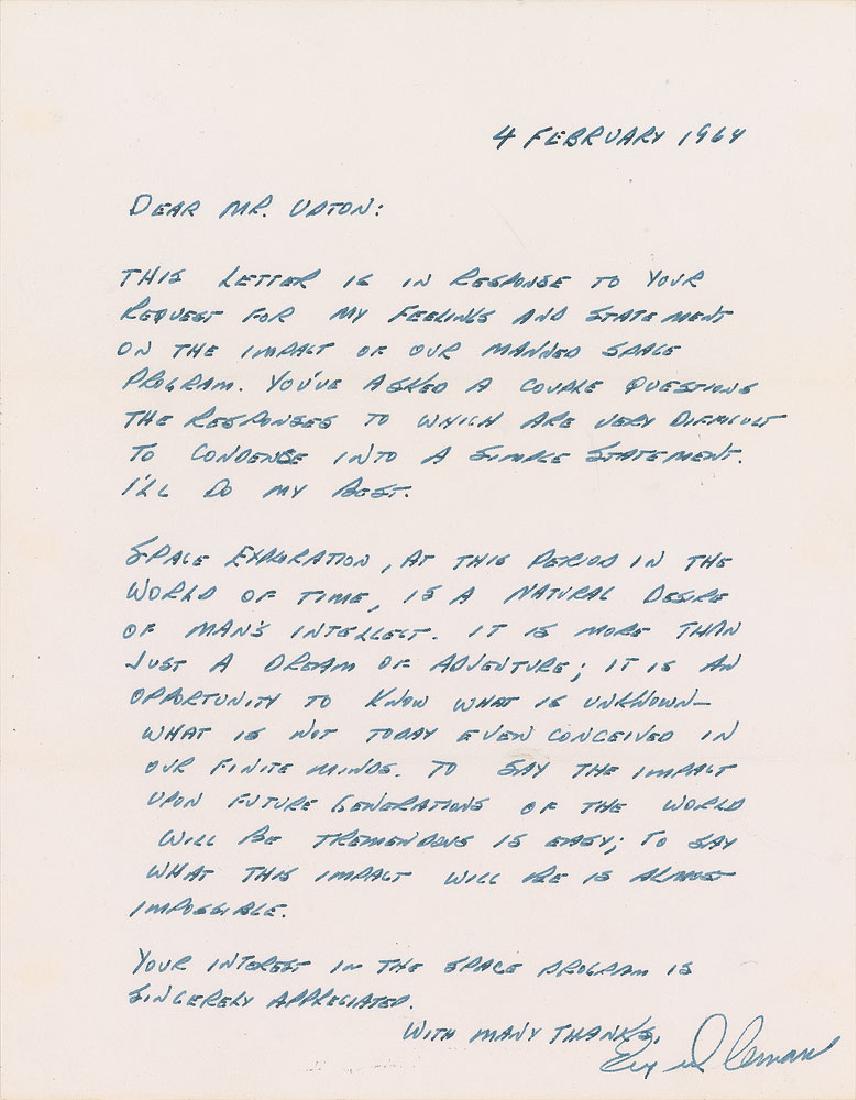 4 FEBRUARY 1964
DEAR MR. UPTON:
THIS LETTER IS IN RESPONSE TO YOUR
REQUEST FOR MY FEELINGS AND STATEMENT
ON THE IMPACT OF OUR MANNED SPACE
PROGRAM. YOU'VE ASKED A COUPLE QUESTIONS
THE RESPONSES TO WHICH ARE VERY DIFFICULT
TO CONDENSE INTO A SIMPLE STATEMENT.
I'LL DO MY BEST.
SPACE EXPLORATION, AT THIS PERIOD IN THE
WORLD OF TIME, IS A NATURAL DESIRE
OF MAN'S INTELLECT. IT IS MORE THAN
JUST A DREAM OF ADVENTURE; IT IS AN
OPPORTUNITY TO KNOW WHAT IS UNKNOWN—
WHAT IS NOT TODAY EVEN CONCEIVED IN
OUR FINITE MINDS. TO SAY THE IMPACT
UPON FUTURE GENERATIONS OF THE WORLD
WILL BE TREMENDOUS IS EASY; TO SAY
WHAT THIS IMPACT WILL BE IS ALMOST
IMPOSSIBLE.
YOUR INTEREST IN THE SPACE PROGRAM IS
SINCERELY APPRECIATED.
WITH MANY THANKS,